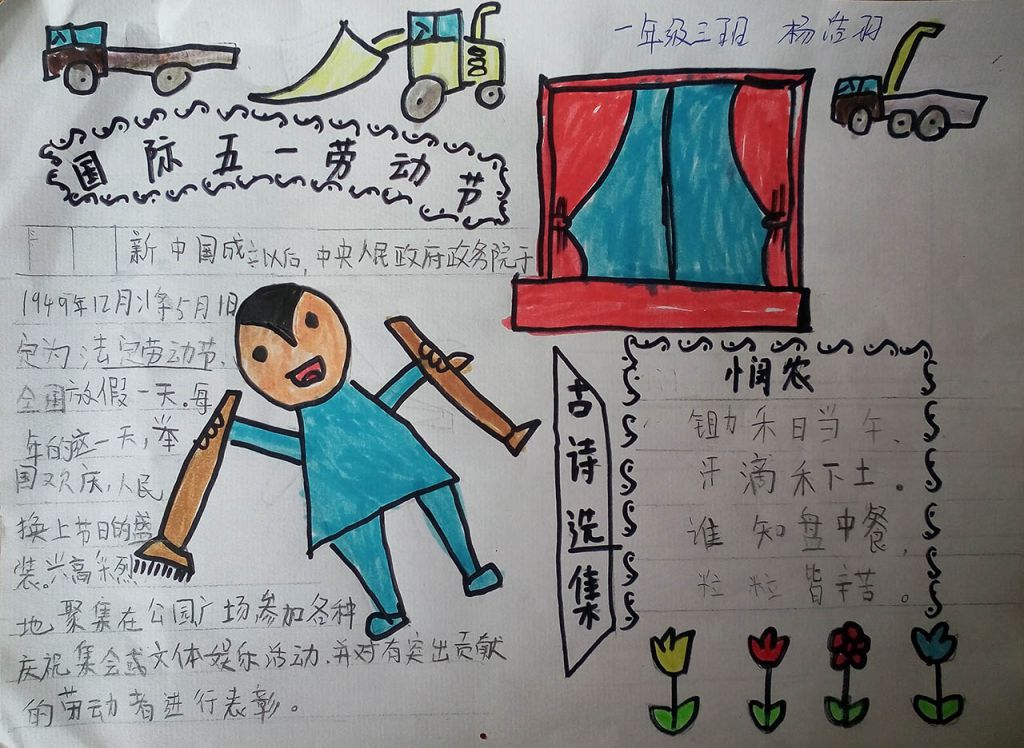 一年级三班 杨浩羽
国际五一劳动节
新中国成立以后,中央人民政府政务院于
1949年12月将5月1日
定为法定劳动节、
全国放假一天.每
年的这一天,举
国欢庆,人民
换上节日的盛
装。兴高采烈
地聚集在公园广场参加各种
庆祝集会或文体娱乐活动.并对有突出贡献
的劳动者进行表彰。
古诗选集
悯农
锄禾日当午、
汗滴禾下土。
谁知盘中餐,
粒粒皆辛苦。